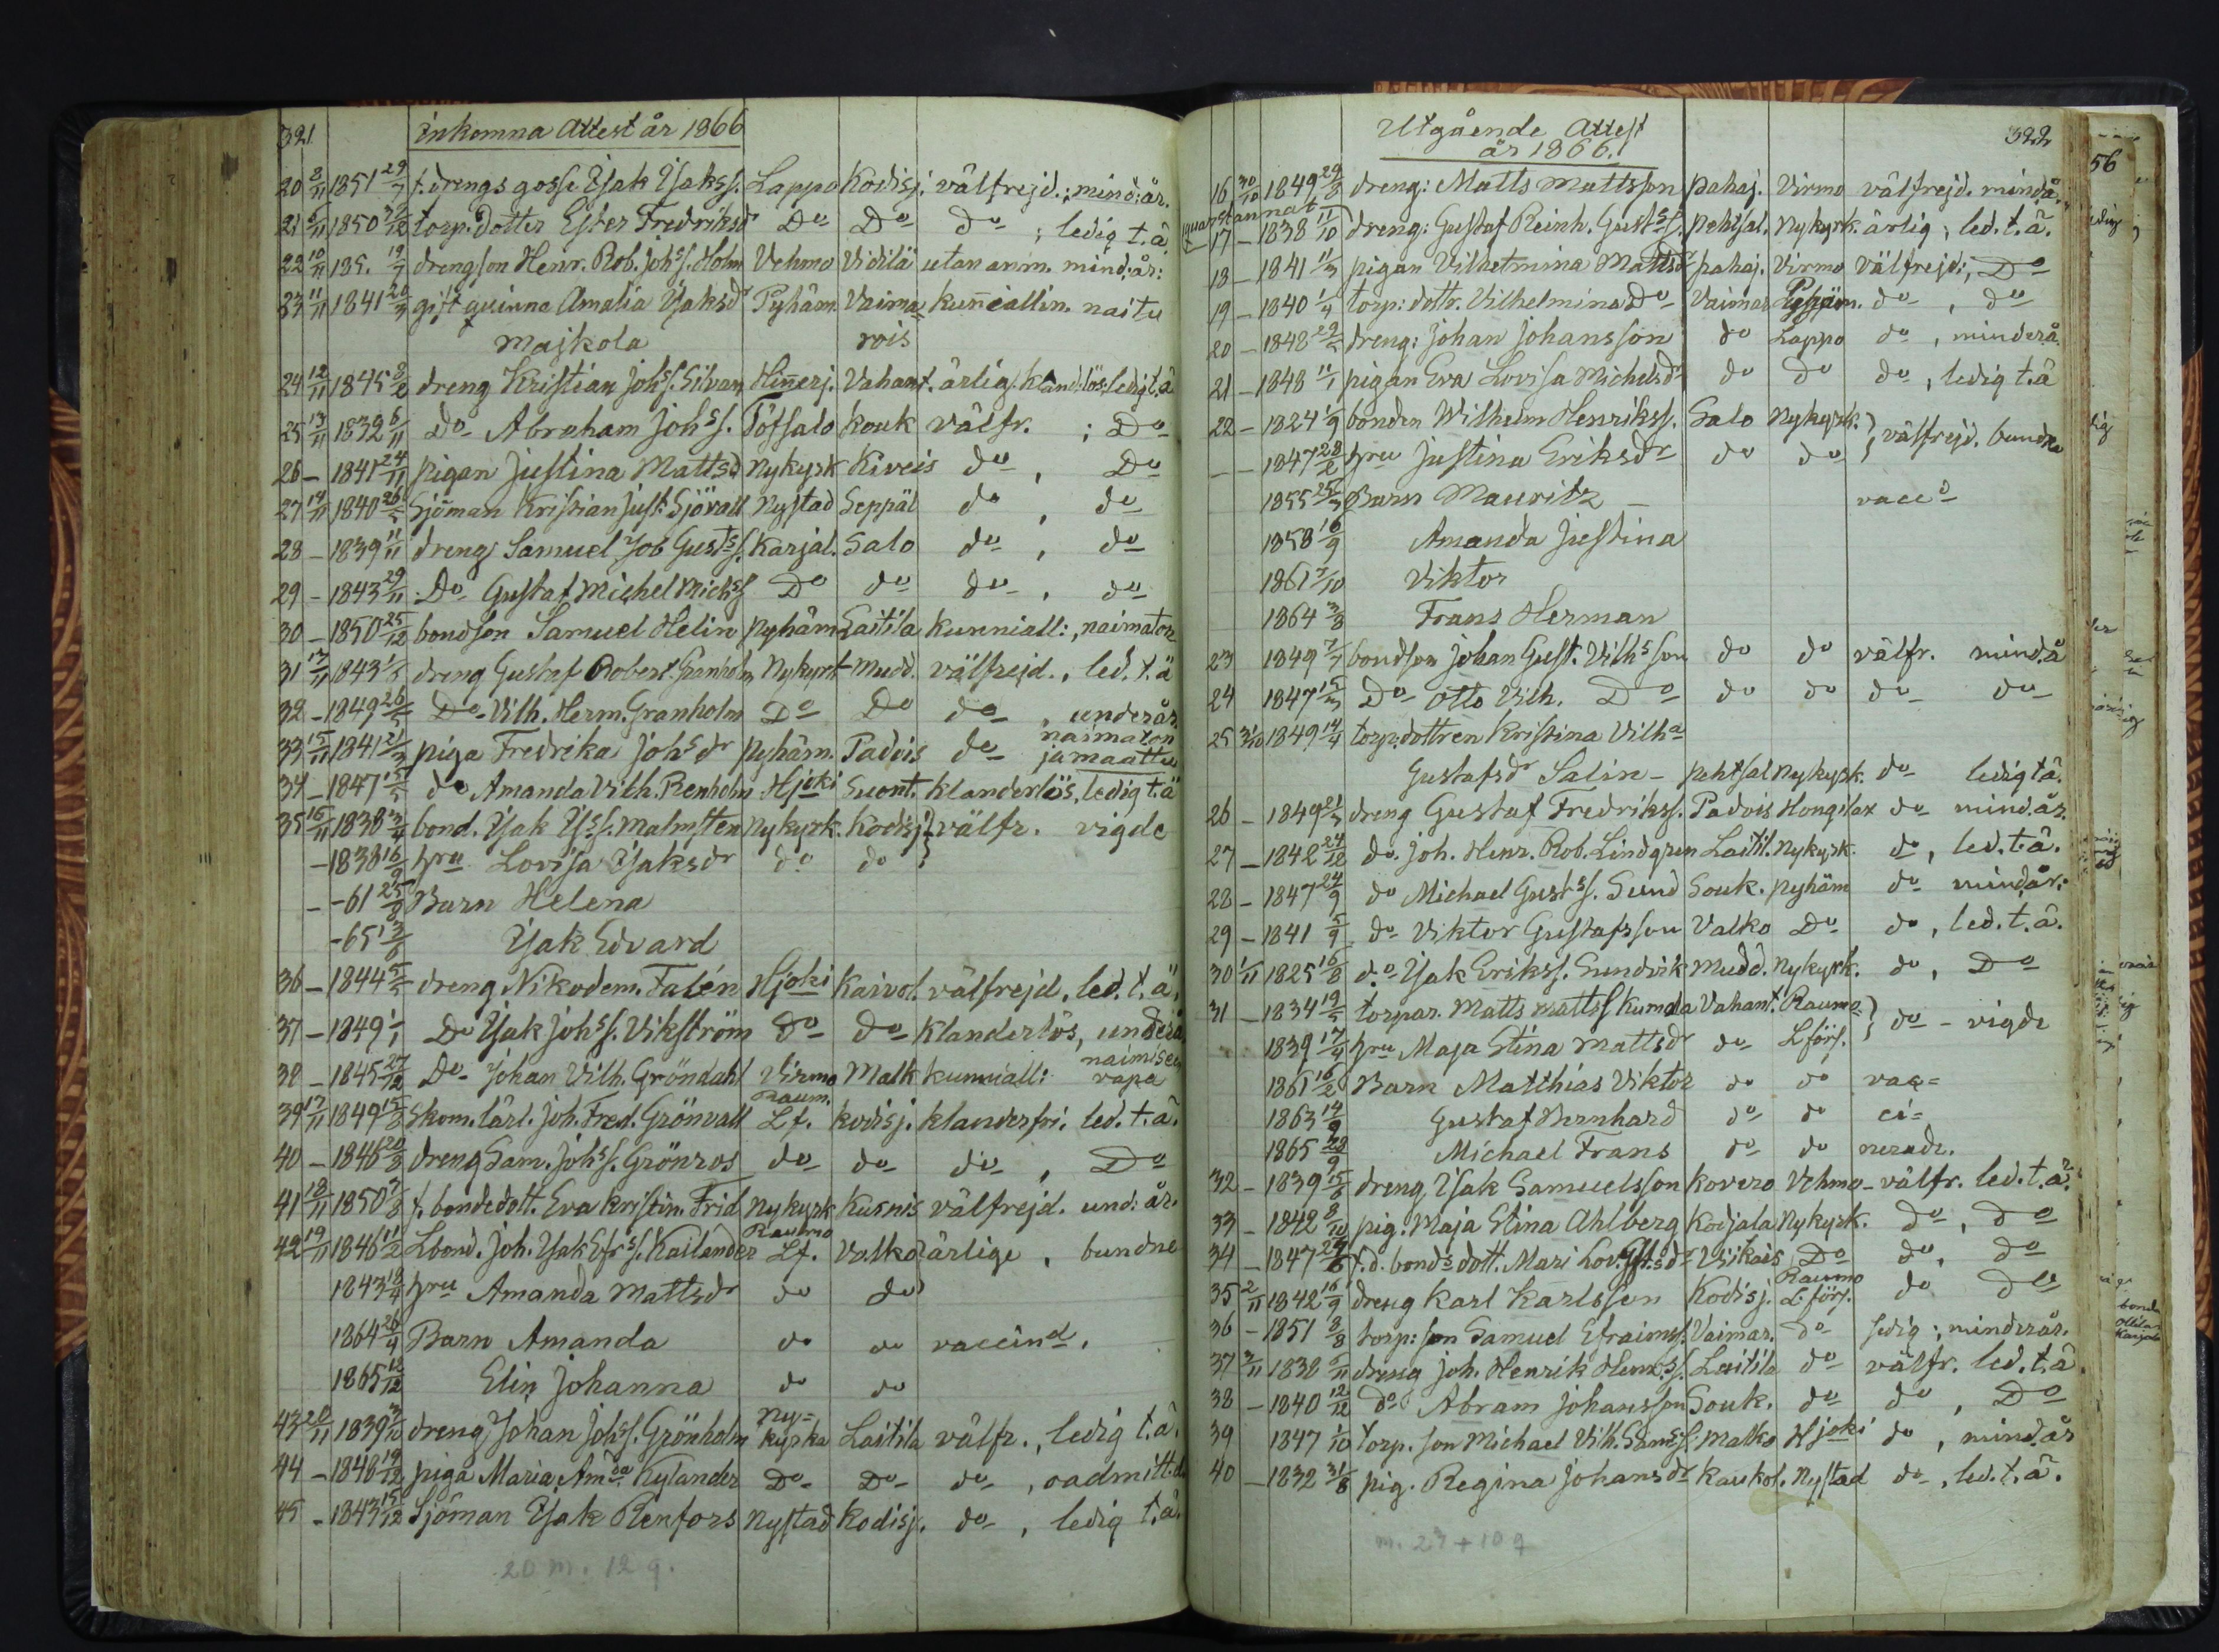 321
inkomna Attest år 1866
20 8/11 1851 29/7 f. drengs gosse Isak Isakss. Lappo Kodisj. välfrejd.; mind: år.
21 6/11 1850 torp. dotter Ester Fredriksdr Do Do do ; ledig t. ä
22 10/11 185. 19/7 drengson Henr. Rob. Johss. Holm Vehmo Vidilä utan anm. mind: år:
23 11/11 1841 20/3 gift qvinna Amalia Isaksdr Pyhäm. Vaima= kuñiallin. naitu
Majkola rois
24 12/11 1845 8/2 dreng Kristian Johss. Silvan Hiñerj. Vahant. ärlig. kland: lös. ledig t. ä
25 13/11 1832 6/11 Do Abraham Johss. Töfsalo Kouk välfr. ; Do
26 – 1841 24/11 pigan Justina Mattsd Nykyrk Kiveis do , Do
27 14/11 1840 26/5 Sjöman Kristian Just. Sjövall Nystad Seppäl do , do
28 – 1839 11/11 dreng Samuel Job Gustss. Karjal. Salo do , do
29 – 1843 29/11 Do Gustaf Michel Michss Do do do , do
30 – 1850 25/12 bondson Samuel Helin Pyhäm Laitila kunniall: , naimaton
31 14/11 1843 1/5 dreng Gustaf Robert Granholm Nykyrk Mudd. välfrejd. , led. t. ä
32 – 1849 26/5 Do Vilh. Herm. Granholm Do Do do , underår.
33 15/11 1841 21/3 piga Fredrika Johsdr Pyhäm. Padois do naimaton
ja maattu
34 – 1847 15/5 do Amanda Vilh. Renholm Hjoki Suont. klanderlös, ledig t. ä
35 16/11 1838 3/4 bond. Isak Iss. Malmsten Nykyrk. Kodisj } välfr. vigde
– 1838 16/9 hru Lovisa Isaksdr do do }
– -61 25/8 Barn Helena
-65 13/6 Isak Edvard
36 – 1844 5/5 dreng Nikodem. Falén Hjoki Kaivol. välfrejd, led. t. ä.
37 – 1849 1/1 Do Isak Johss. Vikström do do klanderlös, underå
38 – 1845 27/12 Do Johan Vilh. Gröndahl Virmo Malk kunniall: naimisen
vapa
39 17/11 1849 15/8 Skom. lärl. Joh. Fred. Grönvall Raum.
Lf. kodisj. klanderfri. led. t. ä.
40 – 1846 20/8 dreng Sam. Johss. Grönros do do do , Do
41 18/11 1850 3/8 f. bondedott. Eva Kristin. Frid Nykyrk Kusnis välfrejd. und: år.
42 19/11 1846 11/2 Lbond. Joh. Isak Efrss. Kailander Raumo
Lf. Valko ärlige , bundne
1843 18/4 hru Amanda Mattsdr do do
1864 26/4 Barn Amanda do do vaccind.
1865 12/12 Elin Johanna do do
43 20/11 1839 3/10 dreng Johan Johss. Grönholm Ny=
kyrka Laitila välfr. , ledig t. ä.
44 – 1848 19/12 piga Maria Amda Kylander Do Do do , oadmitt. d
45 – 1843 15/12 Sjöman Isak Renfors Nystad Kodisj. do , ledig t. ä.
20 m. 12 q.
Utgående Attest
år 1866.
322
16 30/10 1849 29/8 dreng: Matts Mattsson Pahaj. Virmo välfrejd. mind. å.
quarstannat
17 – 1838 11/10 dreng: Gustaf Reinh. Gustss. Pehtsal. Nykyrk. ärlig; led. t. ä.
18 – 1841 11/3 pigan Vilhelmina Mattsdr Pahaj. Virmo välfrejd; Do
19 – 1840 1/4 torp: dottr. Vilhelmina Do Vaimar Pyhäm. do , do
20 – 1848 29/5 dreng: Johan Johansson do Lappo do , minderå.
21 – 1848 11/1 pigan Eva Lovisa Michelsdr do do do , ledig t. ä
22 – 1824 1/9 bonden Wilhelm Henrikss. Salo Nykyrk. } välfrejd. bundna
– – 1847 28/2 hru Justina Eriksdr do do }
1855 25/3 Barn Mauritz – vacc
1858 16/9 Amanda Justina
1861 7/10 Viktor
1864 3/8 Frans Herman
23 1849 7/7 bondson Johan Gust. Vilhsson do do välfr. mind. å
24 1847 15/3 Do Otto Vilh. Do do do do do
25 31/10 1849 14/4 torp. dottren Kristina Vilha
Gustafsdr Salin – Pehtsal Nykyrk. do ledig t ä.
26 – 1849 21/3 dreng Gustaf Fredrikss. Padois Hongilax do mind. år.
27 – 1842 24/12 do. Joh. Henr. Rob. Lindgren Laitil. Nykyrk. do, led. t. ä.
28 – 1847 24/9 do Michael Gustss. Sund Souk. Pyhäm do mind. år:
29 – 1841 5/9 do Viktor Gustafsson Valko Do do, led. t. ä.
30 1/11 1825 16/8 do Isak Erikss. Sundvik Mudd. Nykyrk. do, Do
31 – 1834 19/5 torpar. Matts Mattss Kumda Vahant. Raumo } do – vigde
1839 17/4 hru Maja Stina Mattsdr do L förs. }
1861 16/2 Barn Matthias Viktor do do vac=
1863 14/9 Gustaf Bernhard do do ci=
1865 28/9 Michael Frans do do nerade.
32 – 1839 15/6 dreng Isak Samuelsson Kovero Vehmo – välfr. led. t. ä.
33 – 1842 8/10 pig. Maja Stina Ahlberg Kodjala Nykyrk. do, do
34 – 1847 24/6 f. d. bonds dott. Mari Lov. Gst:sdr Vsikais Do do, do
35 2/11 1842 16/9 dreng Karl Karlsson Kodisj. Raumo
L. förs. do Do
36 – 1851 8/8 torp: son Samuel Efraimss. Vaimar. Do sedig; minderår.
37 3/11 1838 5/11 dreng Joh. Henrik Henrss. Laitila do välfr. led. t. ä.
38 – 1840 12/12 Do Abram Johansson Souk. do do , Do
39 1847 1/10 Torp. son Michael Vilh. Samss. Malko Hjoki do , mind. år
40 – 1832 31/8 pig. Regina Johansdr Kaukol. Nystad do, led. t. ä.
m. 23 + 10 q
56